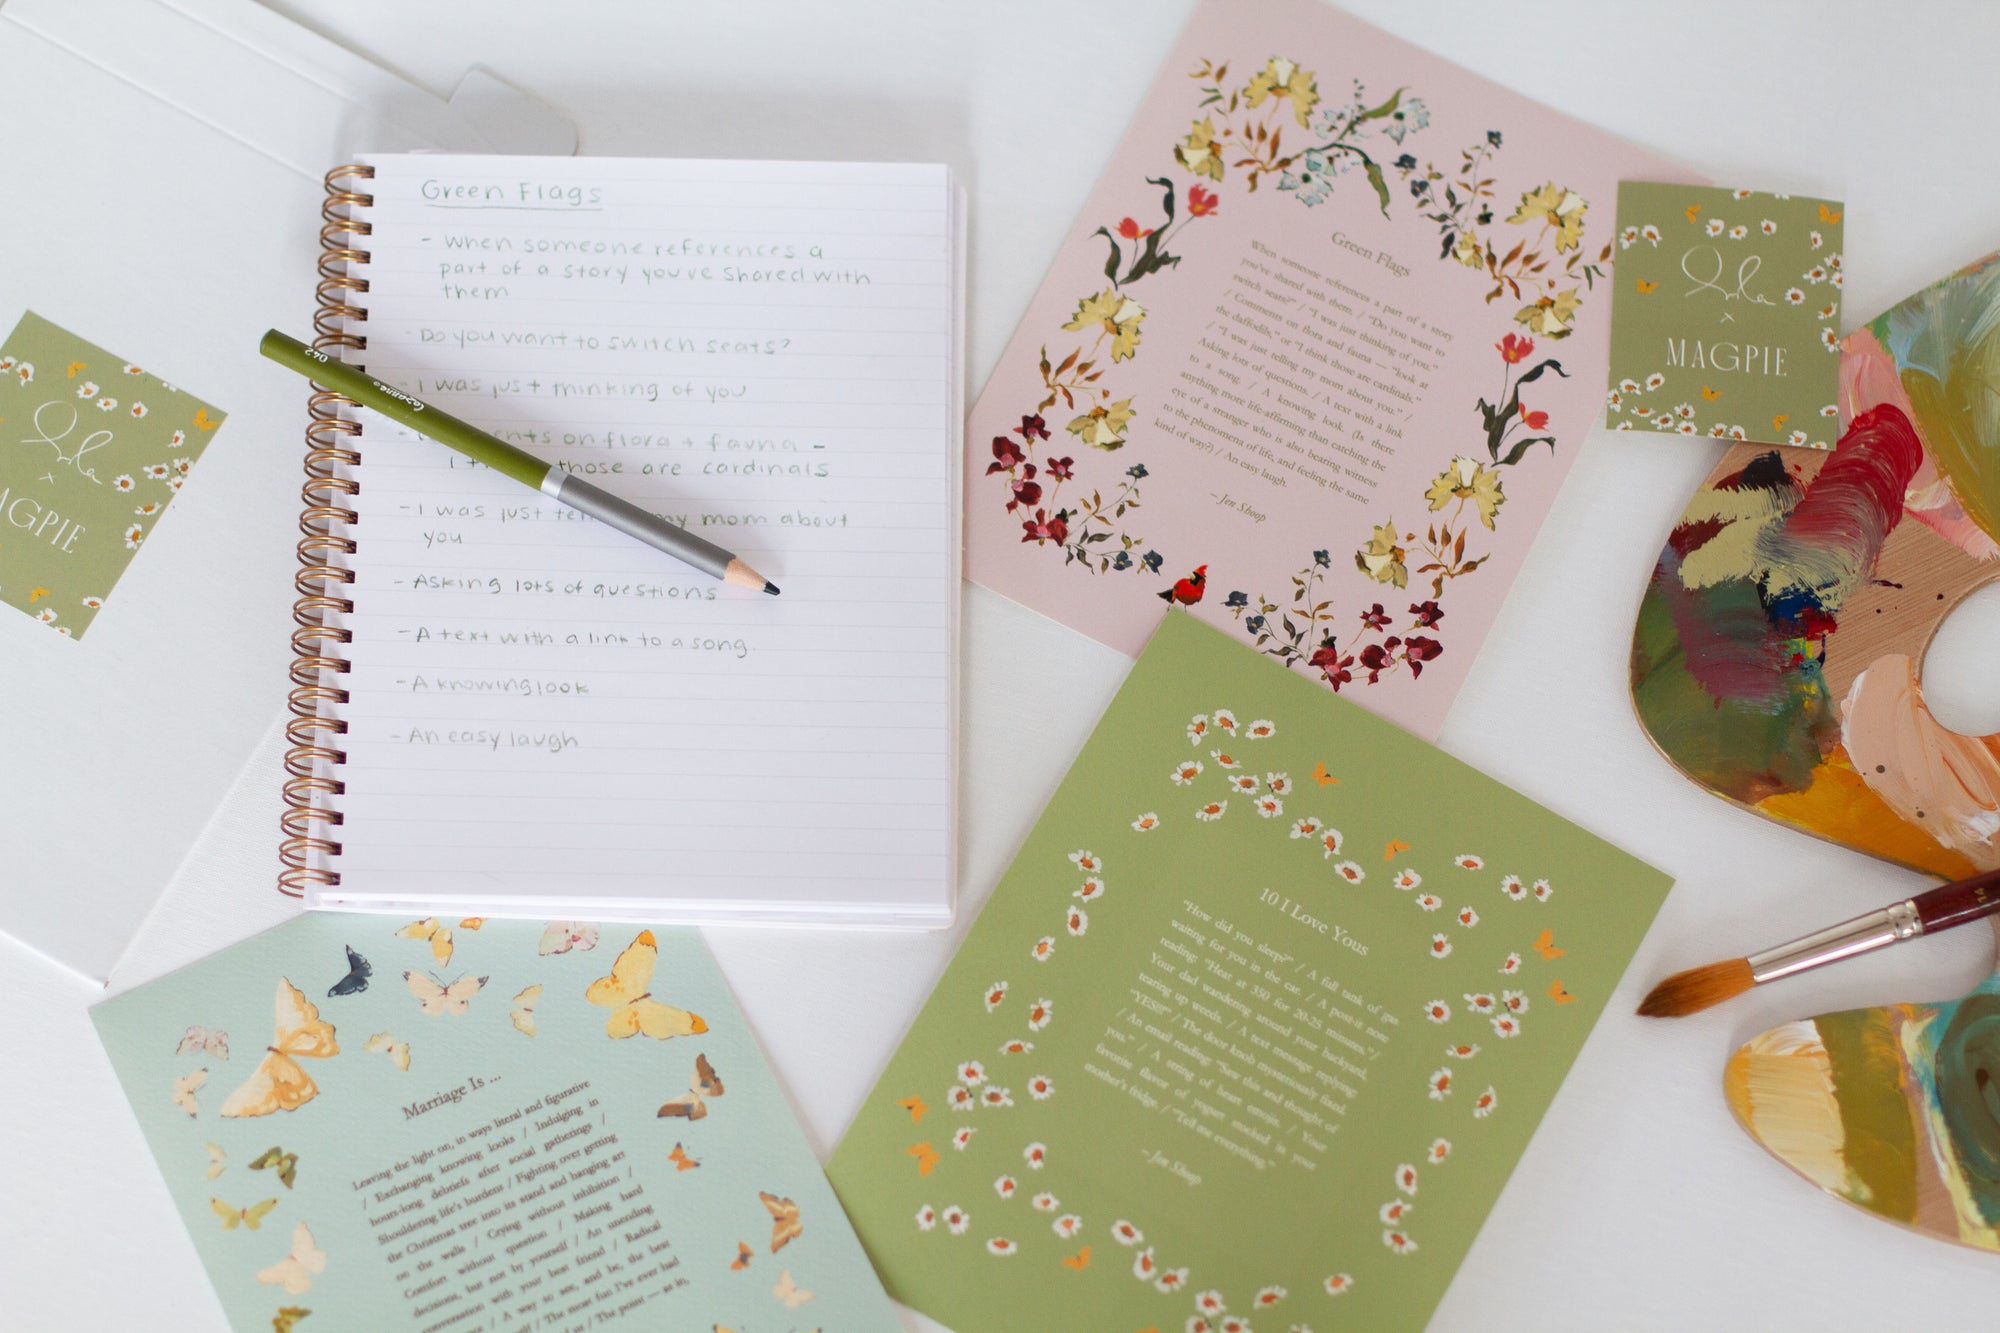 Green Flags
- when someone references a
part of a story you've shared with
them
- Do you want to switch seats?
- I was just thinking of you
on flora + fauna -
I those are cardinals
- I was just my mom about
you
- Asking lots of questions
- A text with a link to a song.
- A knowing look
- An easy laugh
042
Cezanne
Green Flags
When someone references a part of a story
you've shared with them. / "Do you want to
switch seats?" / "I was just thinking of you."
/ Comments on flora and fauna — "look at
the daffodils," or "I think those are cardinals."
/ "I was just telling my mom about you." /
Asking lots of questions. / A text with a link
to a song. / A knowing look. (Is there
anything more life-affirming than catching the
eye of a stranger who is also bearing witness
to the phenomena of life, and feeling the same
kind of way?) / An easy laugh.
– Jen Shoop
x
MAGPIE
x
AGPIE
10 I Love Yous
"How did you sleep?" / A full tank of gas
waiting for you in the car. / A post-it note
reading: "Heat at 350 for 20-25 minutes."/
Your dad wandering around your backyard,
tearing up weeds. / A text message replying:
"YES!!!" / The door knob mysteriously fixed.
/ An email reading: "Saw this and thought of
you." / A string of heart emojis. / Your
favorite flavor of yogurt stocked in your
mother's fridge. / "Tell me everything."
– Jen Shoop
Marriage Is ...
Leaving the light on, in ways literal and figurative
/ Exchanging knowing looks / Indulging in
hours-long debriefs after social gatherings /
Shouldering life's burdens / Fighting over getting
the Christmas tree into its stand and hanging art
on the walls / Crying without inhibition /
Comfort without question / Making hard
decisions, but not by yourself / An unending
conversation with your best friend / Radical
/ A way to see, and be, the best
/ The most fun I've ever had
/ The point — as in,
14